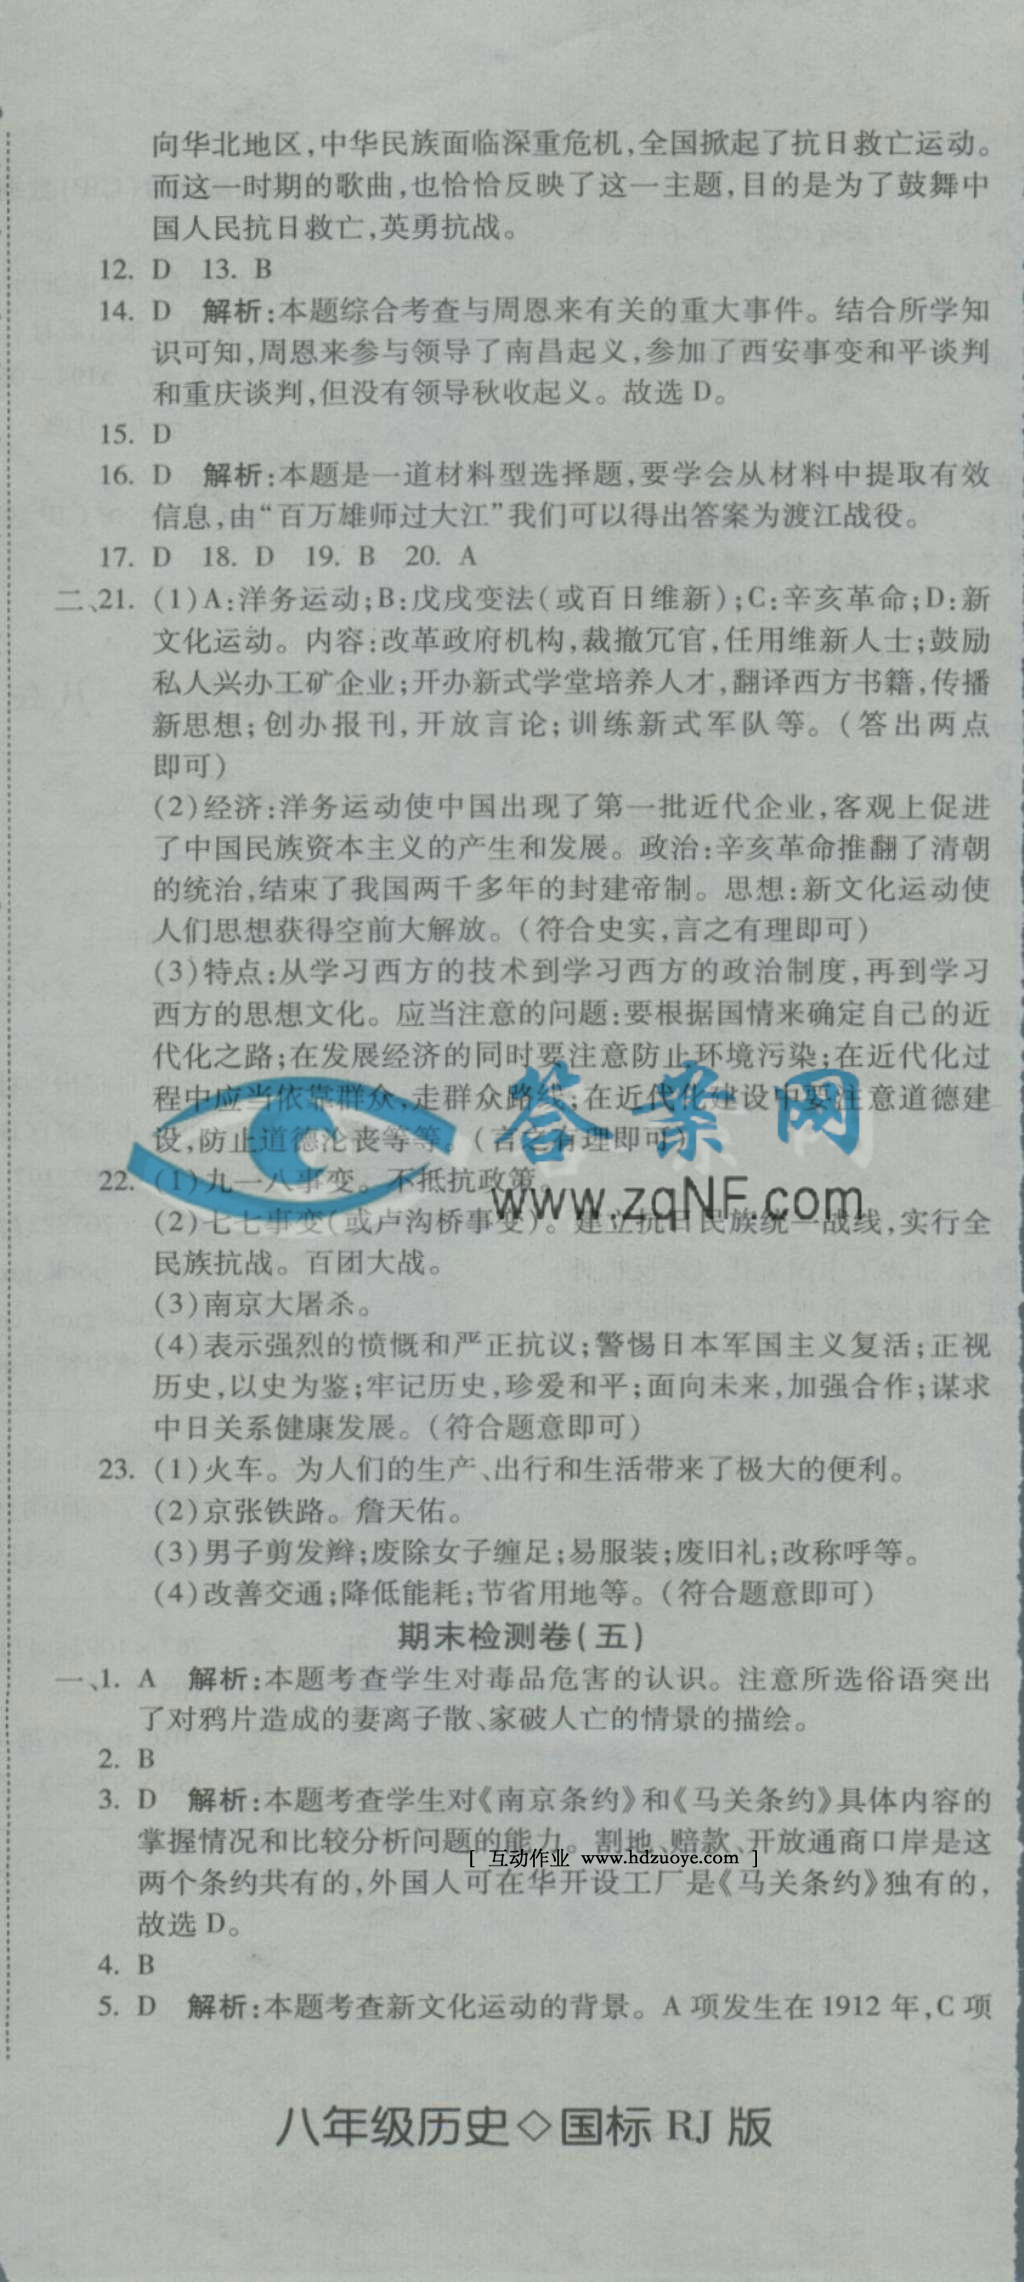 向华北地区,中华民族面临深重危机,全国掀起了抗日救亡运动。
而这一时期的歌曲,也恰恰反映了这一主题,目的是为了鼓舞中
国人民抗日救亡,英勇抗战。
12. D 13. B
14. D 解析:本题综合考查与周恩来有关的重大事件。结合所学知
识可知,周恩来参与领导了南昌起义,参加了西安事变和平谈判
和重庆谈判,但没有领导秋收起义。故选D。
15. D
16. D 解析:本题是一道材料型选择题,要学会从材料中提取有效
信息,由“百万雄师过大江”我们可以得出答案为渡江战役。
17. D 18. D 19. B 20. A
二、21. (1)A:洋务运动;B:戊戌变法(或百日维新);C:辛亥革命;D:新
文化运动。内容:改革政府机构,裁撤冗官,任用维新人士;鼓励
私人兴办工矿企业;开办新式学堂培养人才,翻译西方书籍,传播
新思想;创办报刊,开放言论;训练新式军队等。(答出两点
即可)
(2)经济:洋务运动使中国出现了第一批近代企业,客观上促进
了中国民族资本主义的产生和发展。政治:辛亥革命推翻了清朝
的统治,结束了我国两千多年的封建帝制。思想:新文化运动使
人们思想获得空前大解放。(符合史实,言之有理即可)
(3)特点:从学习西方的技术到学习西方的政治制度,再到学习
西方的思想文化。应当注意的问题:要根据国情来确定自己的近
代化之路;在发展经济的同时要注意防止环境污染;在近代化过
程中应当依靠群众,走群众路线;在近代化建设中要注意道德建
设,防止道德沦丧等等。(言之有理即可)
答案网
www.zqNF.com
22. (1)九一八事变。不抵抗政策。
(2)七七事变(或卢沟桥事变)。建立抗日民族统一战线,实行全
民族抗战。百团大战。
(3)南京大屠杀。
(4)表示强烈的愤慨和严正抗议;警惕日本军国主义复活;正视
历史,以史为鉴;牢记历史,珍爱和平;面向未来,加强合作;谋求
中日关系健康发展。(符合题意即可)
23. (1)火车。为人们的生产、出行和生活带来了极大的便利。
(2)京张铁路。詹天佑。
(3)男子剪发辫;废除女子缠足;易服装;废旧礼;改称呼等。
(4)改善交通;降低能耗;节省用地等。(符合题意即可)
期末检测卷(五)
一、1. A 解析:本题考查学生对毒品危害的认识。注意所选俗语突出
了对鸦片造成的妻离子散、家破人亡的情景的描绘。
2. B
3. D 解析:本题考查学生对《南京条约》和《马关条约》具体内容的
掌握情况和比较分析问题的能力。割地、赔款、开放通商口岸是这
[ 互动作业 www.hdzuoye.com ]
两个条约共有的,外国人可在华开设工厂是《马关条约》独有的,
故选D。
4. B
5. D 解析:本题考查新文化运动的背景。A项发生在1912年,C项
八年级历史◇国标RJ版